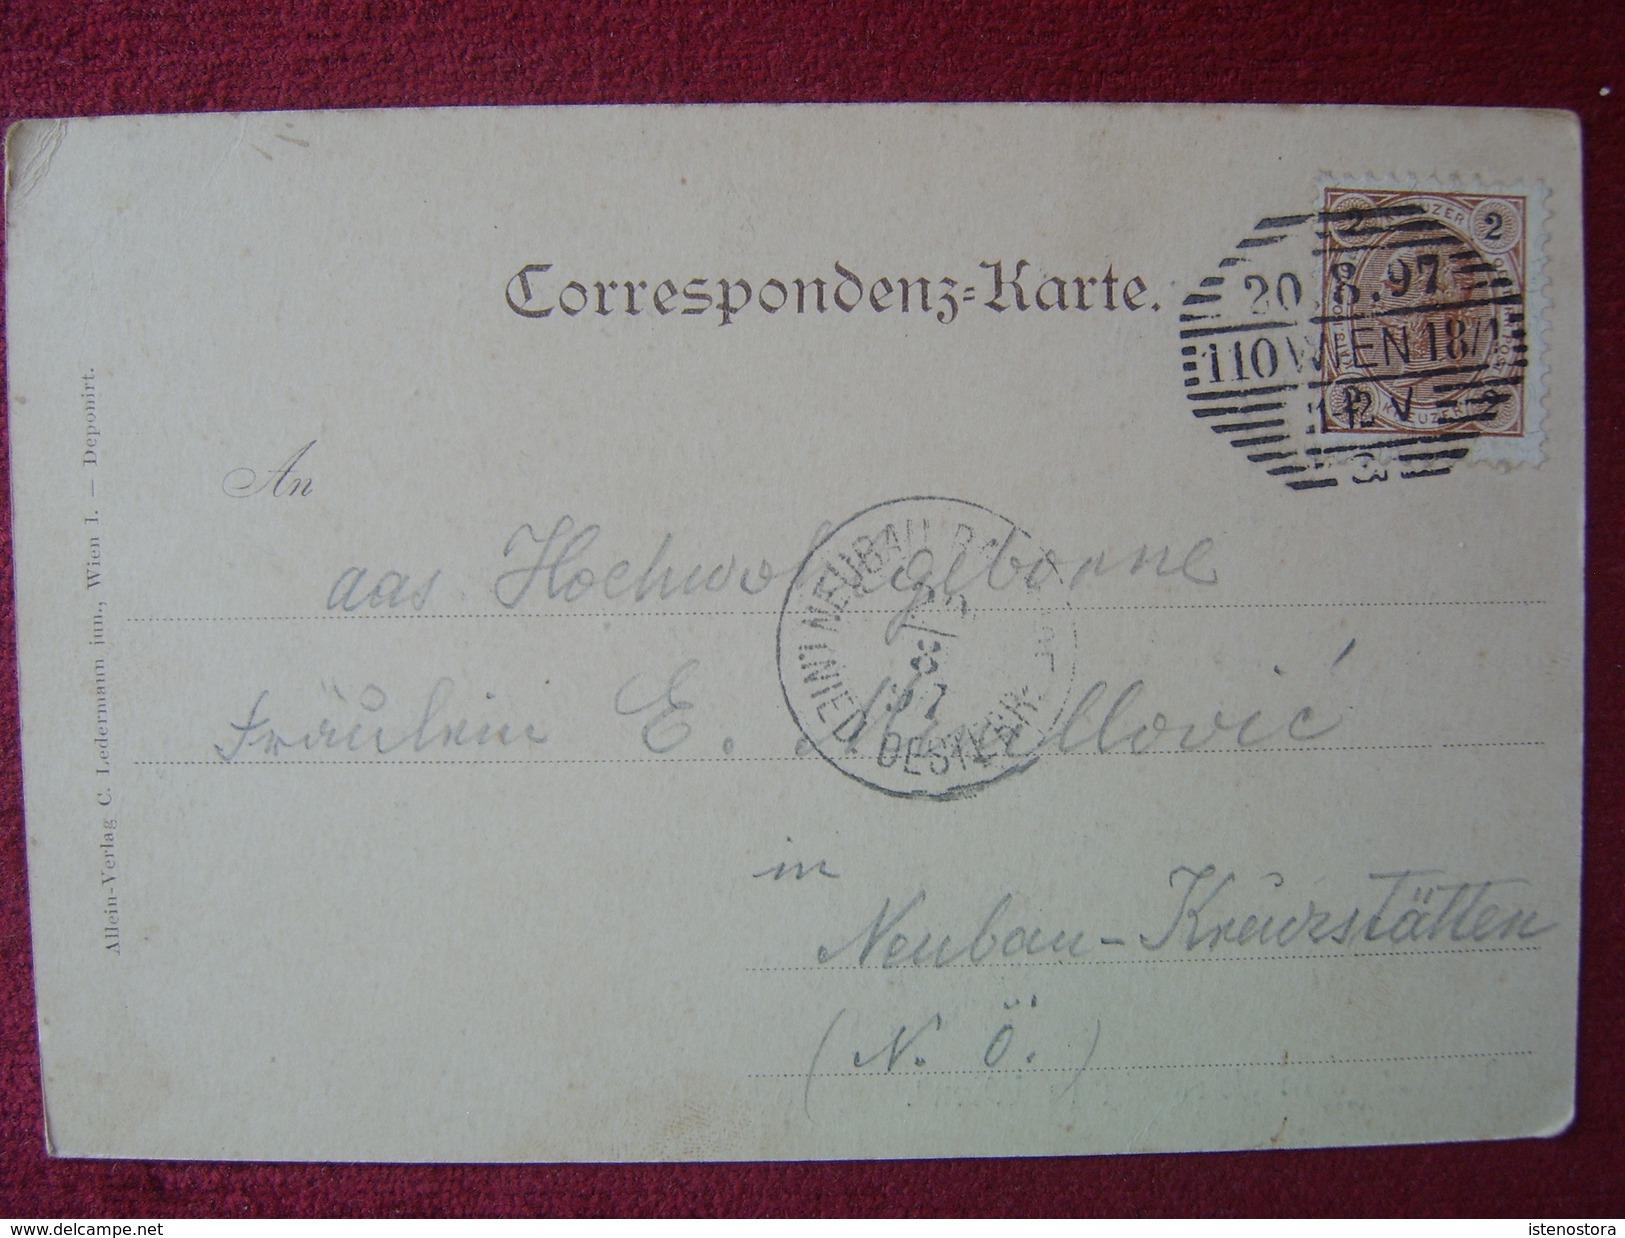 Correspondenz-Karte.
2 KREUZER 2
20.8.97
110 WIEN 18/1
12 V
3
An
das Hochwohlgeborne
Fräulein E.
in
Neubau-Kreuzstätten
(N. Ö.)
NEUBAU
OESTER
Allein-Verlag C. Ledermann jun., Wien I. — Deponirt.
http://www.delcampe.net
istenostora